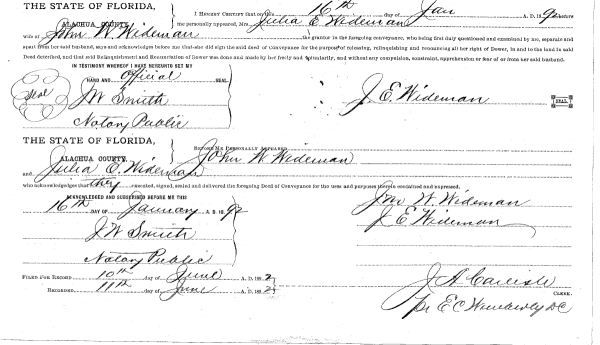 THE STATE OF FLORIDA, I HEREBY CERTIFY that on this 16th day of Jan A. D. 1892 before
ALACHUA COUNTY. me personally appeared, Mrs. Julia E Wideman
wife of John W. Wideman the grantor in the foregoing conveyance, who being first duly questioned and examined by me, separate and
apart from her said husband, says and acknowledges before me that she did sign the said deed of Conveyance for the purpose of releasing, relinquishing and renouncing all her right of Dower, in and to the land in said
Deed described, and that said Relinquishment and Renunciation of Dower was done and made by her freely and voluntarily, and without any compulsion, constraint, apprehension or fear of or from her said husband.
IN TESTIMONY WHEREOF I HAVE HEREUNTO SET MY
HAND AND official SEAL.
Seal JW Smith J. E. Wideman SEAL.
Notary Public
THE STATE OF FLORIDA,
ALACHUA COUNTY. BEFORE ME PERSONALLY APPEARED John W Wideman
and Julia E. Wideman
who acknowledges that they executed, signed, sealed and delivered the foregoing Deed of Conveyance for the uses and purposes therein contained and expressed.
ACKNOWLEDGED AND SUBSCRIBED BEFORE ME THIS Jno W. Wideman
16th DAY OF January A. D. 1892 J E Wideman
J. W Smith
Notary Public
FILED FOR RECORD 10th day of June A. D. 1892 J A Carlisle
RECORDED 11th day of June A. D. 1892 CLERK.
pr E C Wimberly DC